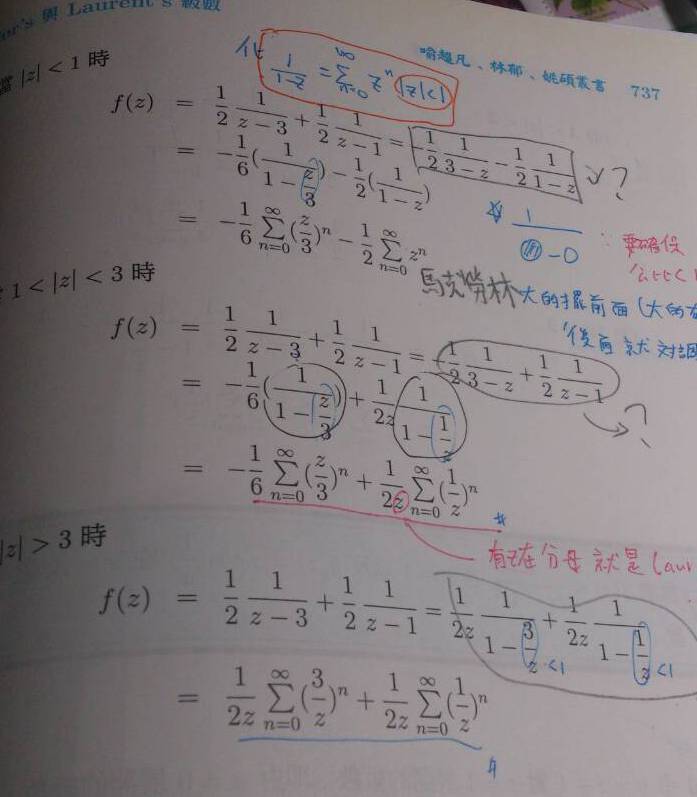 or's 與 Laurent's 級數
喻超凡、林郁、姚碩叢書 737
當 |z| < 1 時
1/(1-z) = ∑_{n=0}^{∞} z^n |z|<1
f(z) = 1/2 1/(z-3) + 1/2 1/(z-1) = -1/2 1/(3-z) - 1/2 1/(1-z) ?
= -1/6(1/(1-z/3)) - 1/2(1/(1-z))
= -1/6 ∑_{n=0}^{∞} (z/3)^n - 1/2 ∑_{n=0}^{∞} z^n
馬克勞林
大的擺前面(大的在
後面就對調
1 < |z| < 3 時
f(z) = 1/2 1/(z-3) + 1/2 1/(z-1) = -1/2 1/(3-z) + 1/2 1/(z-1)
?
= -1/6(1/(1-z/3)) + 1/(2z) 1/(1-1/z)
= -1/6 ∑_{n=0}^{∞} (z/3)^n + 1/(2z) ∑_{n=0}^{∞} (1/z)^n
有z在分母就是Laur
|z| > 3 時
f(z) = 1/2 1/(z-3) + 1/2 1/(z-1) = 1/(2z) 1/(1-3/z) + 1/(2z) 1/(1-1/z)
<1 <1
= 1/(2z) ∑_{n=0}^{∞} (3/z)^n + 1/(2z) ∑_{n=0}^{∞} (1/z)^n